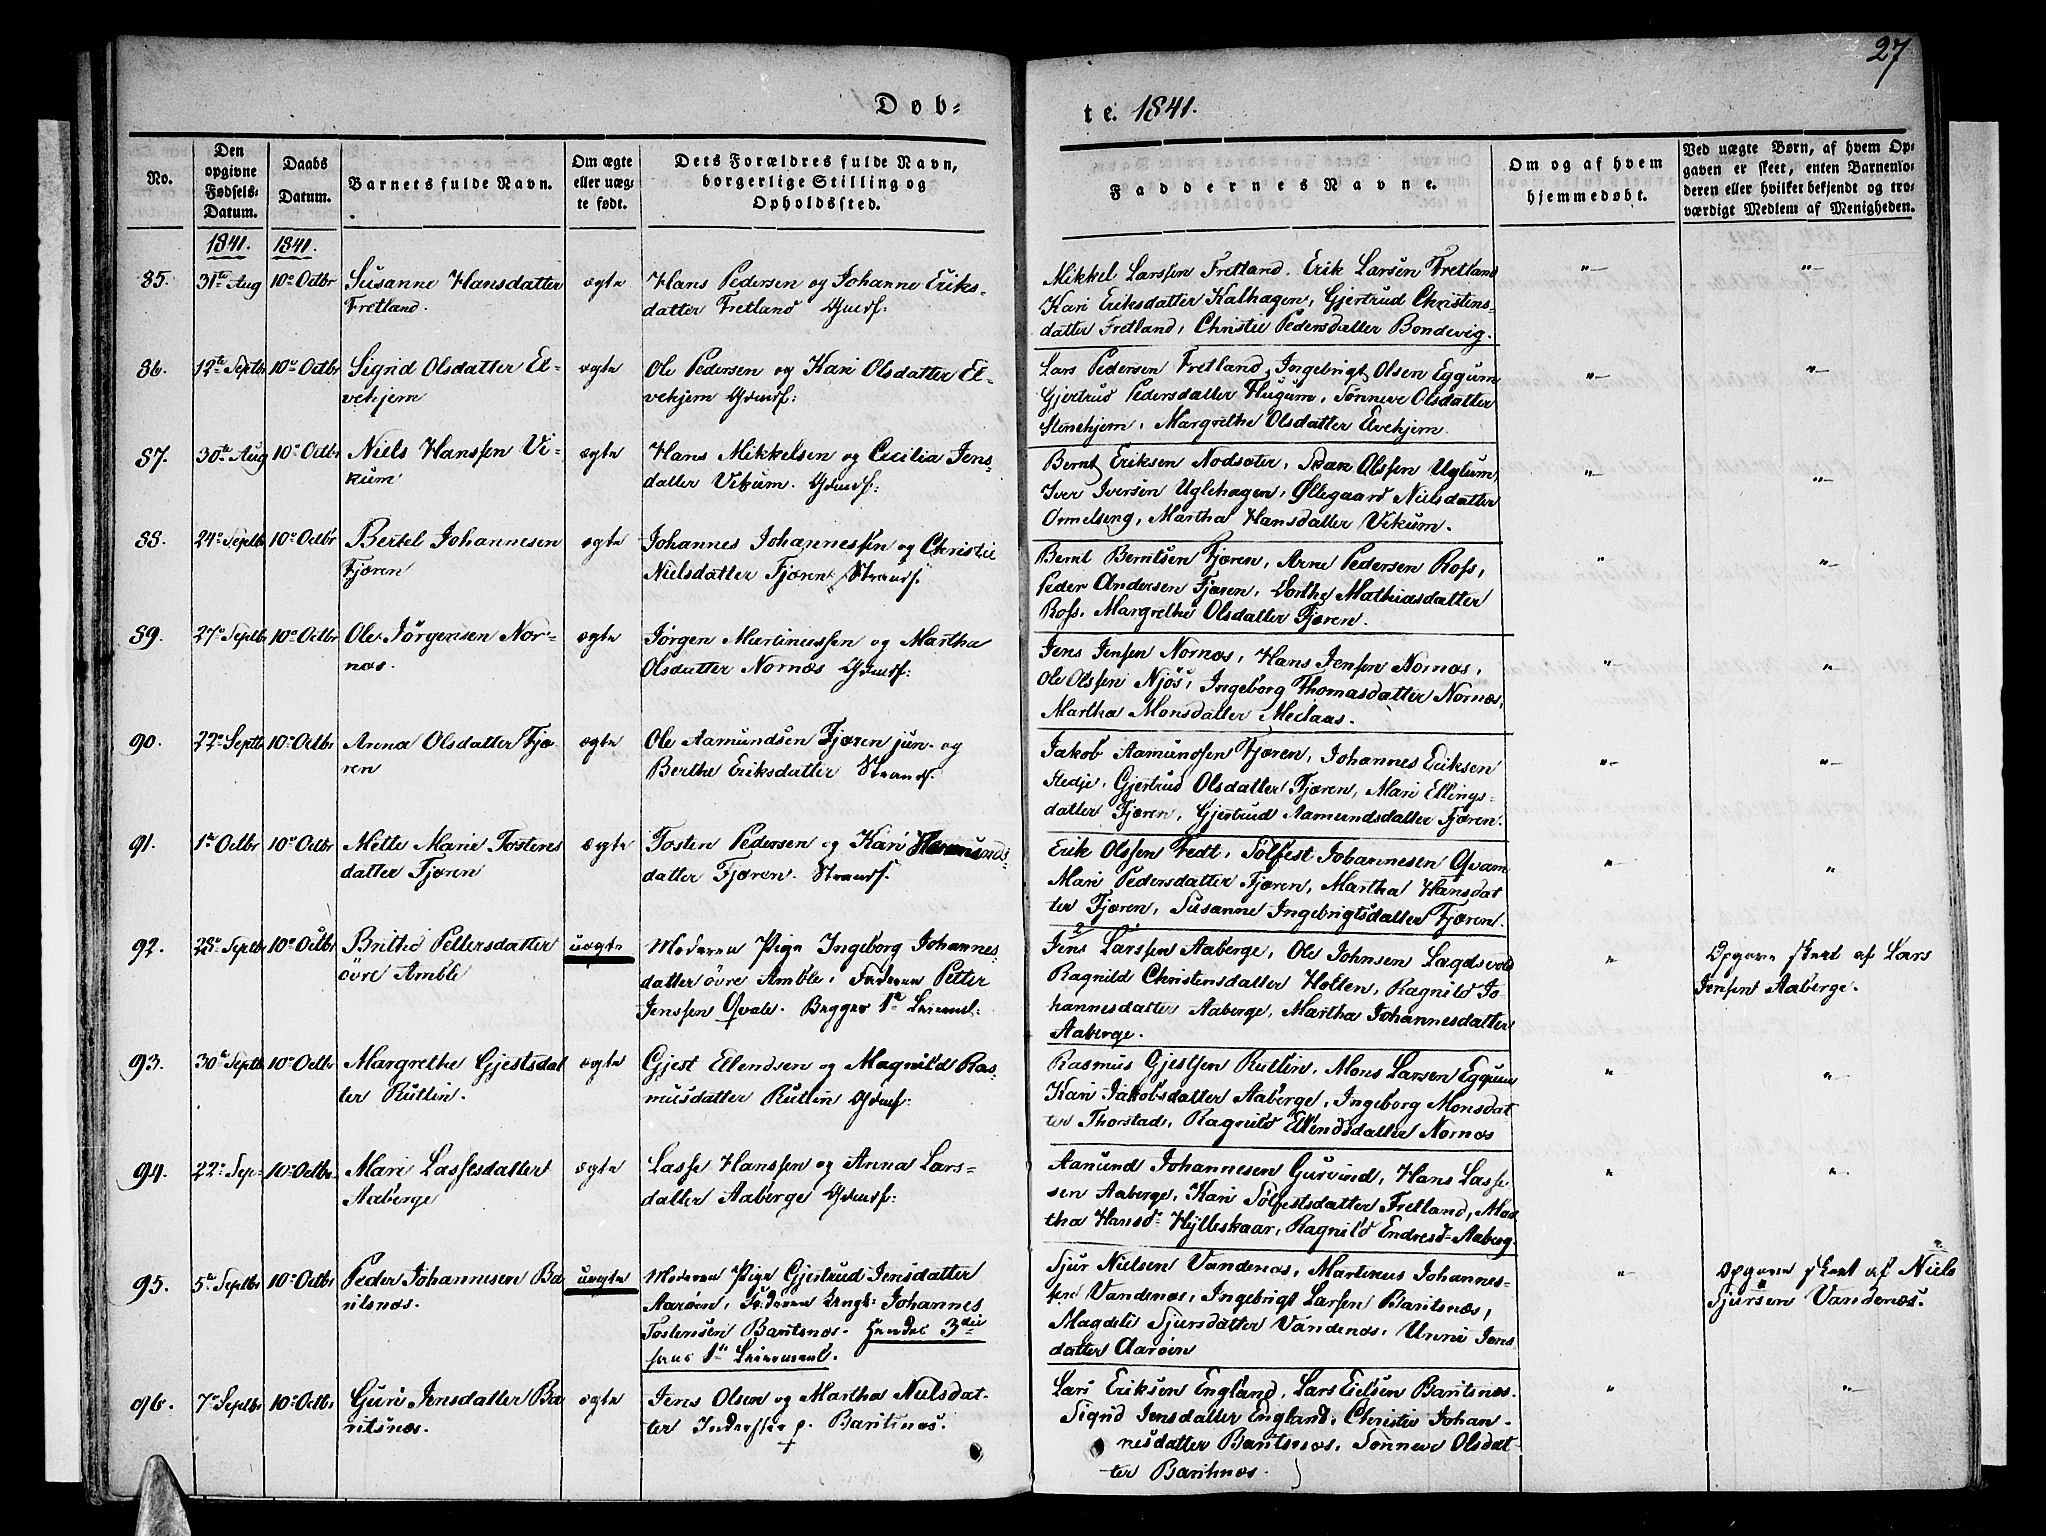 27
Døb-
te. 1841.
No.
Den opgivne Fødsels-Datum.
Daabs Datum.
Barnets fulde Navn.
Om ægte eller uæg-te født.
Dets Forældres fulde Navn, borgerlige Stilling og Opholdssted.
Faddernes Navne.
Om og af hvem hjemmedøbt.
Ved uægte Børn, af hvem Op-
gaven er skeet, enten Barnemo-
deren eller hvilket bekjendt og tro-
værdigt Medlem af Menigheden.
1841. 1841.
85. 31te Aug 10de Octbr Susanne Hansdatter
Fretland.
ægte
Hans Pedersen og Johanne Eriks-
datter Fretland Gdmd:
Mikkel Larssen Fretland. Erik Larsen Fretland
Kari Eriksdatter Kalhagen, Gjertrud Christens-
datter Fretland, Christie Pedersdatter Bondevig.
86. 12te Septbr 10de Octbr Sigrid Olsdatter El-
vehjem
ægte
Ole Pedersen og Kari Olsdatter El-
vehjem Gdmd:
Lars Pedersen Fretland, Ingebrigt Olsen Eggum
Gjertrud Pedersdatter Hugum, Sønneve Olsdatter
Stenehjem, Margrethe Olsdatter Elvehjem.
87. 30te Aug 10de Octbr Niels Hanssen Vi-
kum
ægte
Hans Mikkelsen og Cecilia Jens-
datter Vikum. Gdmd:
Bernt Eriksen Nodsæter, Isak Olssen Uglum,
Iver Iversen Uglehagen, Øllegaard Nielsdatter
Ormelseng, Martha Hansdatter Vikum.
88. 24de Septbr 10de Octbr Bertel Johannesen
Fjæren
ægte
Johannes Johannessen og Christie
Nielsdatter Fjæren Strands.
Bernt Berntsen Fjæren, Arne Pedersen Ross,
Peder Andersen Fjæren, Dorthe Mathiasdatter
Ross, Margrethe Olsdatter Fjæren.
89. 27de Septbr 10de Octbr Ole Jørgensen Nor-
næs.
ægte
Jørgen Martinussen og Martha
Olsdatter Nornæs Gdmd:
Jens Jensen Nornæs, Hans Jensen Nornæs,
Ole Olssen Njøs, Ingeborg Thomasdatter Nornæs,
Martha Monsdatter Melaas.
90. 22de Septbr 10de Octbr Anna Olsdatter Fjæ-
ren
ægte
Ole Aamundsen Fjæren jun. og
Berthe Eriksdatter Strands.
Jakob Aamundsen Fjæren, Johannes Eriksen
Stedje, Gjertrud Olsdatter Fjæren, Mari Ellings-
datter Fjæren, Gjertrud Aamundsdatter Fjæren.
91. 1te Octbr 10de Octbr Mette Marie Tostens
datter Fjæren
ægte
Tosten Pedersen og Kari
datter Fjæren. Strands.
Erik Olssen Fedt, Sølfest Johannesen Qvam
Mari Pedersdatter Fjæren, Martha Hansdat
ter Fjæren, Susanne Ingebrigtsdatter Fjæren.
92. 23de Septbr 10de Octbr Brithe Pettersdatter
øvre Amble
uægte
Moderen Pige Ingeborg Johannes
datter øvre Amble, Faderen Petter
Jenssen Qvale. Begges 1te Leiermaal:
Jens Larssen Aaberge, Ole Johnsen Lagdsvold
Ragnild Christensdatter Holten, Ragnild Jo-
hannesdatter Aaberge, Martha Johannesdatter
Aaberge.
Opgaven skeet af Lars
Jensen Aaberge.
93. 30te Septbr 10de Octbr Margrethe Gjestsdat
ter Rutlin.
ægte
Gjest Ellendsen og Magnild Ras-
musdatter Rutlin Gdmd:
Rasmus Gjestsen Rutlin, Mons Larsen Eggum
Kari Jakobsdatter Aaberge, Ingeborg Monsdat
ter Thorstad, Ragnild Ellendsdatter Nornæs
94. 22de Sep- 10de Octbr. Mari Lassesdatter
Aaberge
ægte
Lasse Hanssen og Anna Lars-
datter Aaberge Gdmd:
Aamund Johannesen Gurvind, Hans Lasse
sen Aaberge, Kari Sølfestsdatter Fretland, Mar
tha Hansd- Hylleskaar, Ragnild Endresd- Aaberg.
95. 5te Septbr 10de Octbr Peder Johannesen Ba
ritsnæs.
uægte
Moderen Pige Gjertrud Jensdatter
Aarøen, Faderen Johannes
Tostensen Baritsnæs. Hendes 3die
hans 1te Leiermaal.
Sjur Nielsen Vandenæs, Martinus Johannes-
sen Vandenæs, Ingebrigt Larsen Baritsnæs,
Magdeli Sjursdatter Vandenæs, Unni Jens
datter Aarøin
Opgaven skeet af Niels
Sjursen Vandenæs.
96. 7de Septbr 10de Octbr Guri Jensdatter Ba
ritsnæs.
ægte
Jens Olsen og Martha Nielsdat-
ter Inderster p. Baritsnæs.
Lars Eriksen England, Lars Eielsen Baritsnæs.
Sigrid Jensdatter England, Christie Johan-
nesdatter Baritsnæs, Sønneve Olsdat-
ter Baritsnæs.